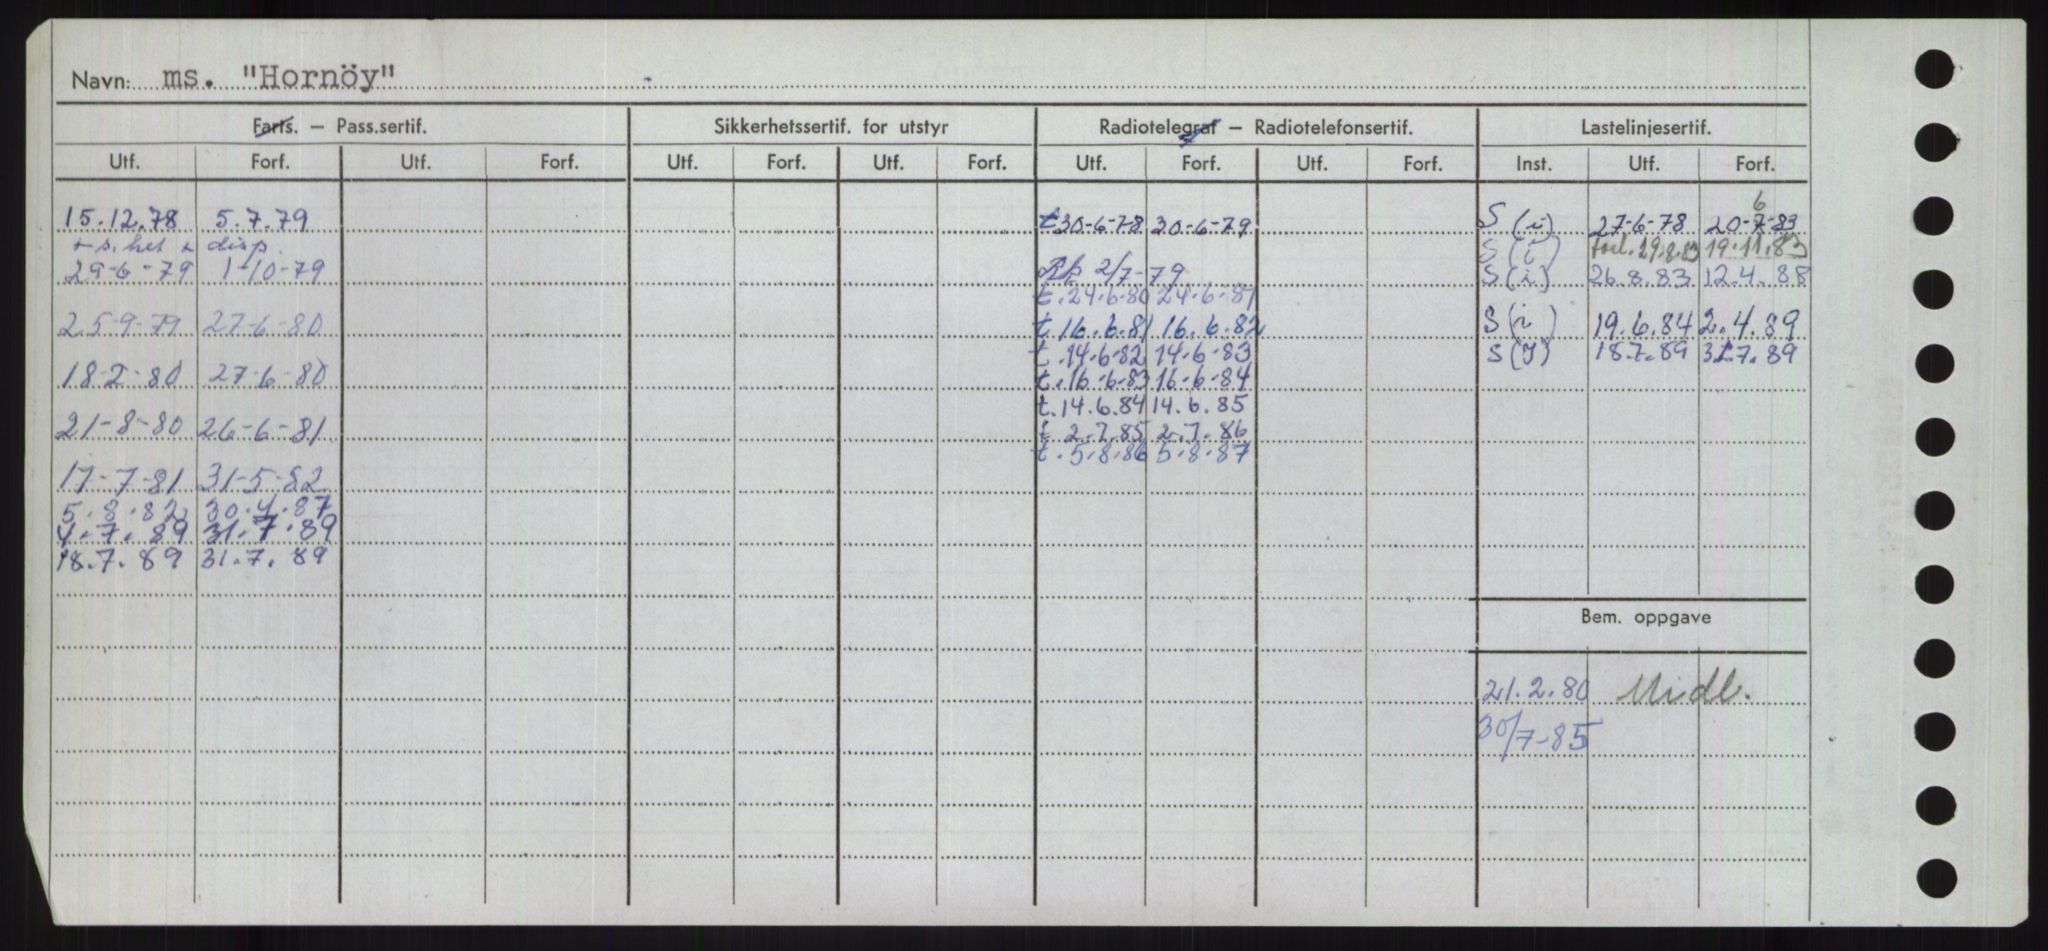 Navn: ms. "Hornöy"
Farts. – Pass.sertif. Sikkerhetssertif. for utstyr Radiotelegraf – Radiotelefonsertif. Lastelinjesertif.
Utf. Forf. Utf. Forf. Utf. Forf. Utf. Forf. Utf. Forf. Utf. Forf. Inst. Utf. Forf.
15.12.78 5.7.79
+ s.het + disp.
29-6-79 1-10-79
25-9-79 27-6-80
18-2-80 27-6-80
21-8-80 26-6-81
17-7-81 31-5-82
5.8.82 30.4.87
4.7.89 31.7.89
18.7.89 31.7.89
t 30-6-78 30-6-79
2/7-79
t. 24-6-80 24-6-81
t. 16.6.81 16.6.82
t. 14-6-82 14-6-83
t. 16-6-83 16-6-84
t. 14.6.84 14.6.85
t 2.7.85 2.7.86
t. 5.8.86 5.8.87
6
S (i) 27-6-78 20-7-83
S (i) forl. 29.8.83 19.11.83
S (i) 26.8.83 12.4.88
S (i) 19.6.84 2.4.89
S (J) 18.7.89 31.7.89
Bem. oppgave
21.2.80 Midl.
30/7-85